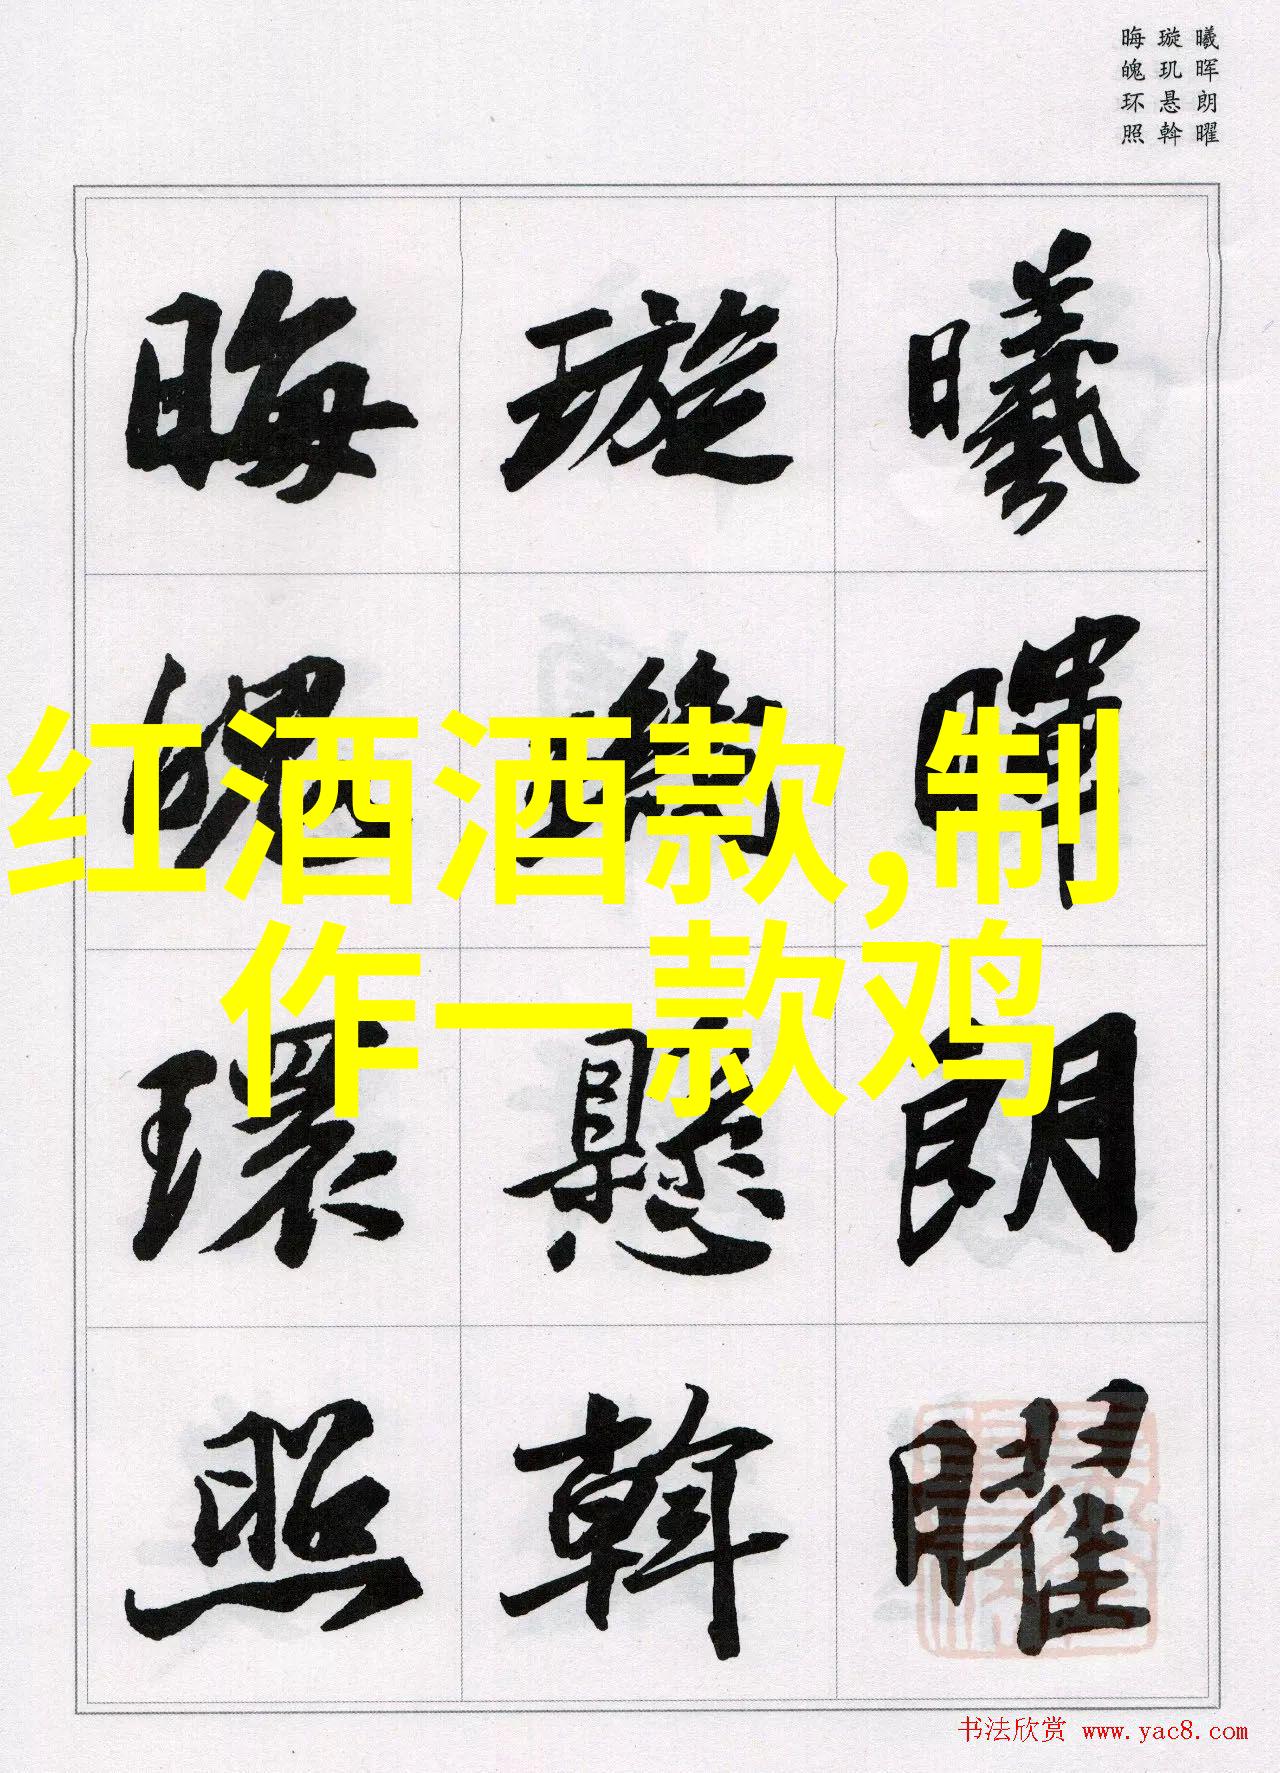 曦晖朗曜
璇玑悬斡
晦魄环照
曦暉朗曜
璇璣懸斡
晦魄環照
红酒酒款,制
作一款鸡
书法欣赏 www.yac8.com